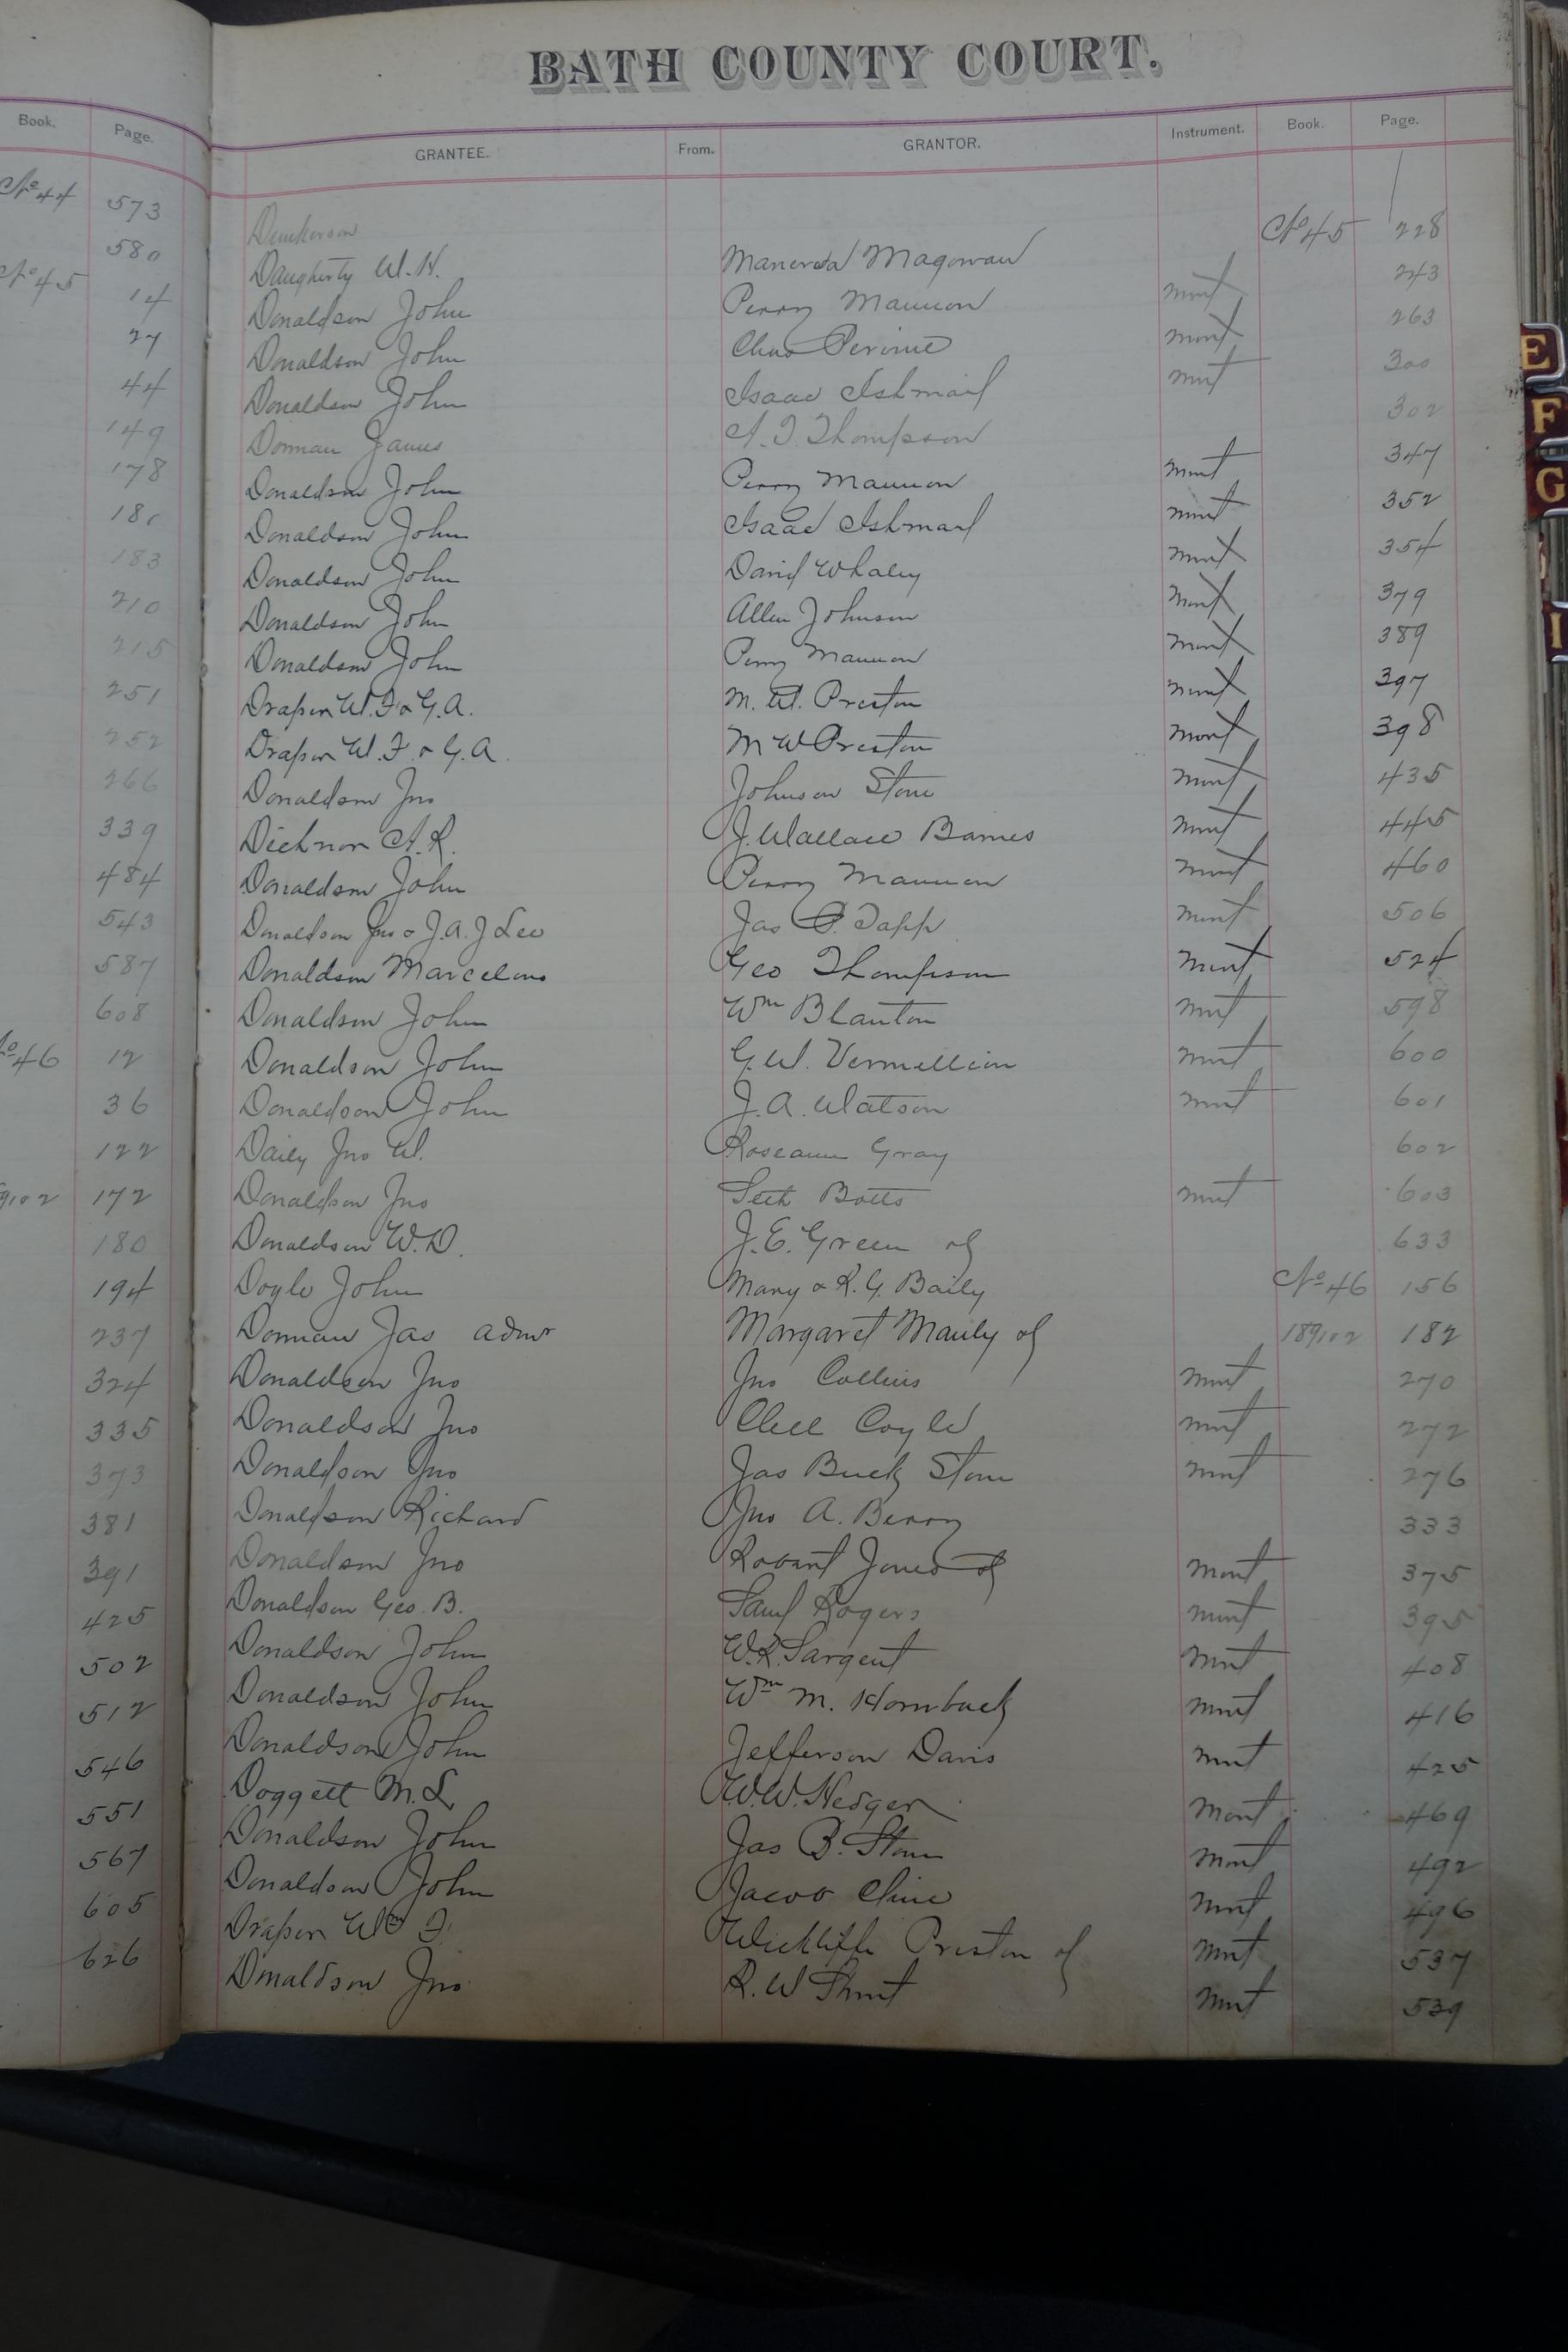 BATH COUNTY COURT.
Book. Page.
GRANTEE. From. GRANTOR. Instrument. Book. Page.
No 44 573
580
No 45 14
27
44
149
178
181
183
210
215
251
252
266
339
484
543
587
608
No 46 12
36
122
172
180
194
237
324
335
373
381
391
425
502
512
546
551
567
605
626
Daugherty W. H. Manerva Magowan No 45 228
Donaldson John Perry Mannon mort 243
Donaldson John Chas Perine mort 263
Donaldson John Isaac Ishmail mort 300
Dorman James A. T. Thompson 302
Donaldson John Perry Mannon mort 347
Donaldson John Isaac Ishmail mort 352
Donaldson John David Whaley mort 354
Donaldson John Allen Johnson mort 379
Donaldson John Perry Mannon mort 389
Draper W. F & G. A. M. W. Preston mort 397
Draper W. F. & G. A. M W Preston mort 398
Donaldson Jno Johnson Stone mort 435
A. R. J. Wallace Barnes mort 445
Donaldson John Perry Mannon mort 460
Donaldson Jno & J. A. J Lee Jas P. Tapp mort 506
Donaldson Marcelous Geo Thompson mort 524
Donaldson John Wm Blanton mort 598
Donaldson John G. W. Vermillion mort 600
Donaldson John J. A. Watson mort 601
Daily Jno W. Roseann Gray 602
Donaldson Jno Seth Botts mort 603
Donaldson W. D. J. E. Green of 633
Doyle John Mary & R. G. Baily No 46 156
Dorman Jas admr Margaret Manly of 182
Donaldson Jno Jno Collins mort 270
Donaldson Jno Clell Coyle mort 272
Donaldson Jno Jas Buck Stone mort 276
Donaldson Richard Jno A. Berry 333
Donaldson Jno Robert Jones of mort 375
Donaldson Geo. B. Saml Rogers mort 395
Donaldson John W. R. Sargent mort 408
Donaldson John Wm M. Hornback mort 416
Donaldson John Jefferson Davis mort 425
Doggett M. L. W. W. Hedger mort 469
Donaldson John Jas B. Stone mort 492
Donaldson John Jacob Cline mort 496
Draper Wm F. Wickliffe Preston of mort 537
Donaldson Jno R. W Shrout mort 539